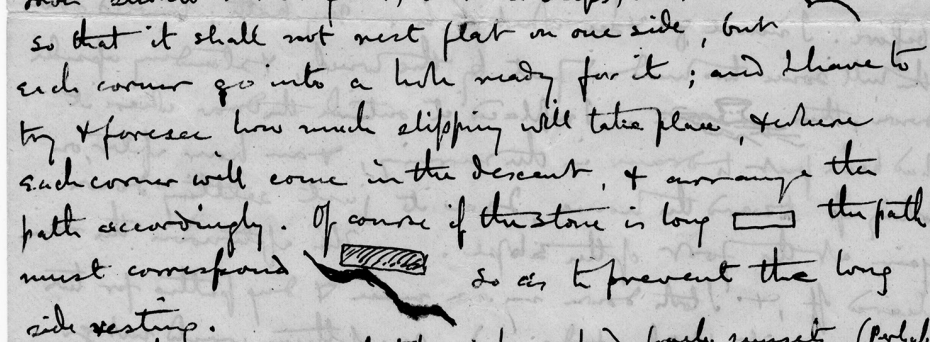 so that it shall not rest flat on one side, but
each corner go into a hole ready for it; and I have to
try & foresee how much slipping will take place, & where
each corner will come in the descent, & arrange the
path accordingly. Of course if the stone is long the path
must correspond so as to prevent the long
side resting.